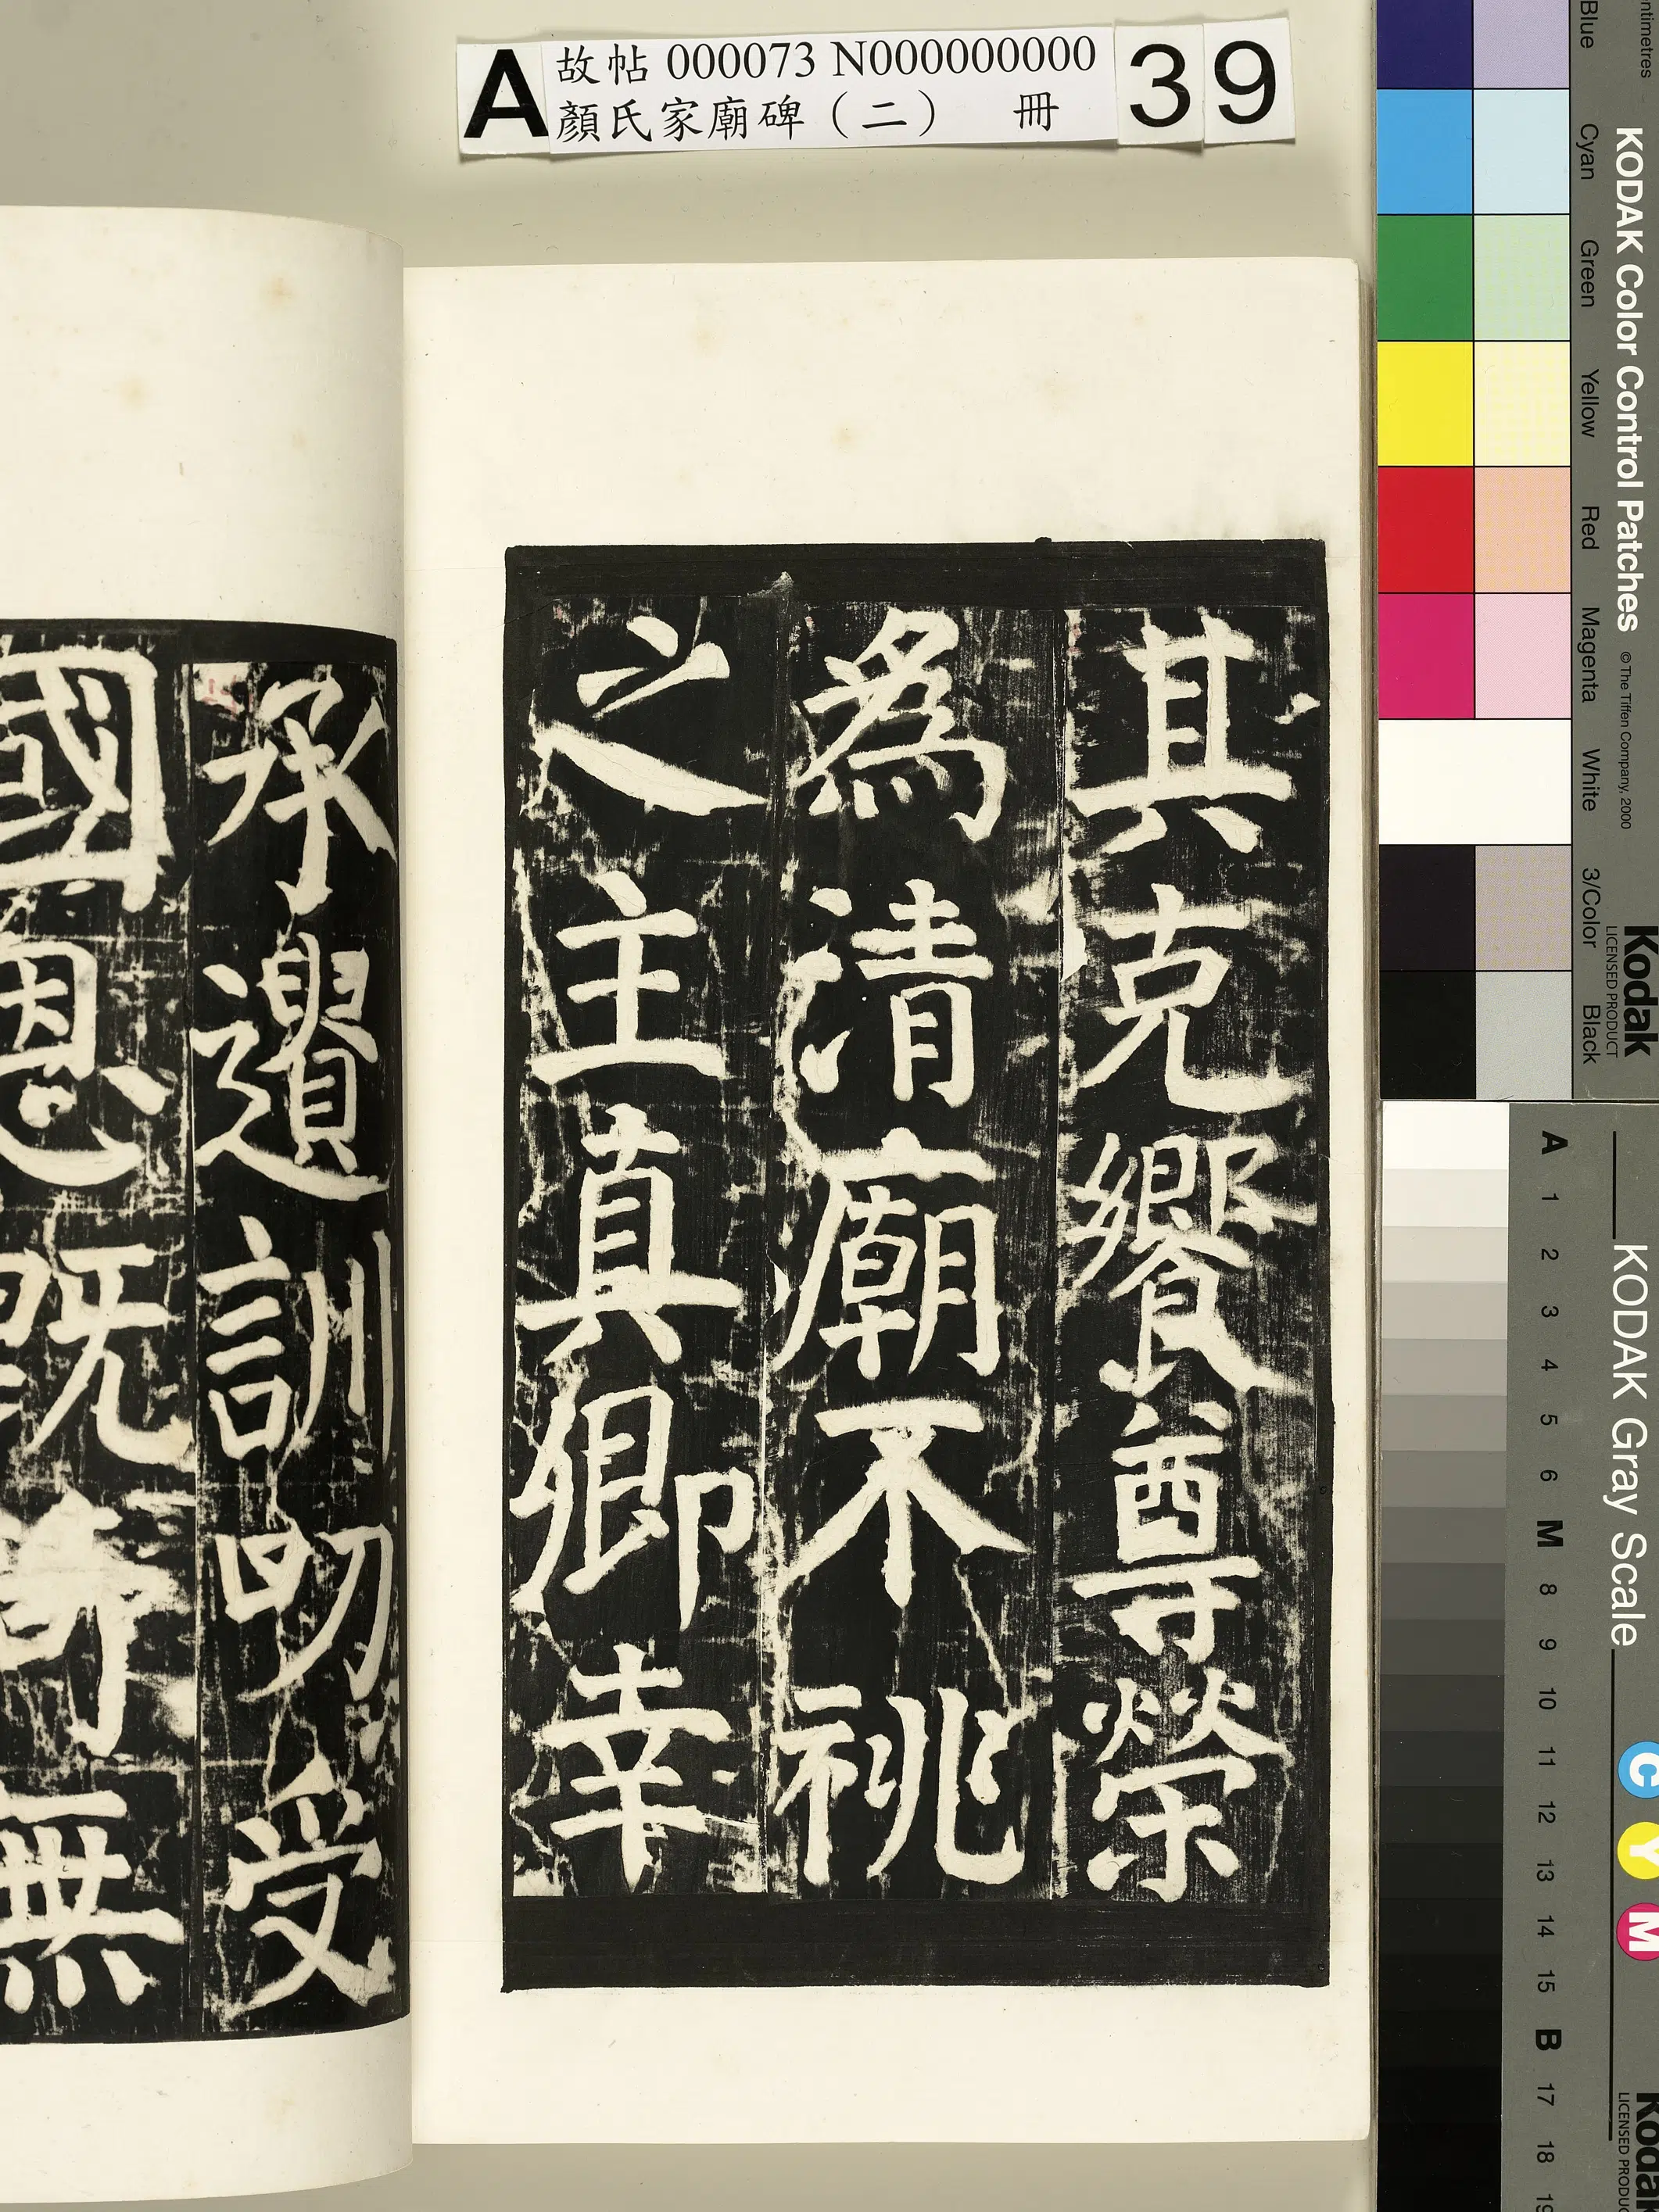 A 故帖 000073 N000000000 39
顏氏家廟碑（二） 冊
其克饗尊榮
為清廟不祧
之主真卿幸
承遺訓叨受
國恩既
無
Blue Cyan Green Yellow Red Magenta White 3/Color Black
KODAK Color Control Patches © The Tiffen Company, 2000
Kodak
LICENSED PRODUCT
KODAK Gray Scale
A 1 2 3 4 5 6 M 8 9 10 11 12 13 14 15 B 17 18 19
C Y M
Kodak